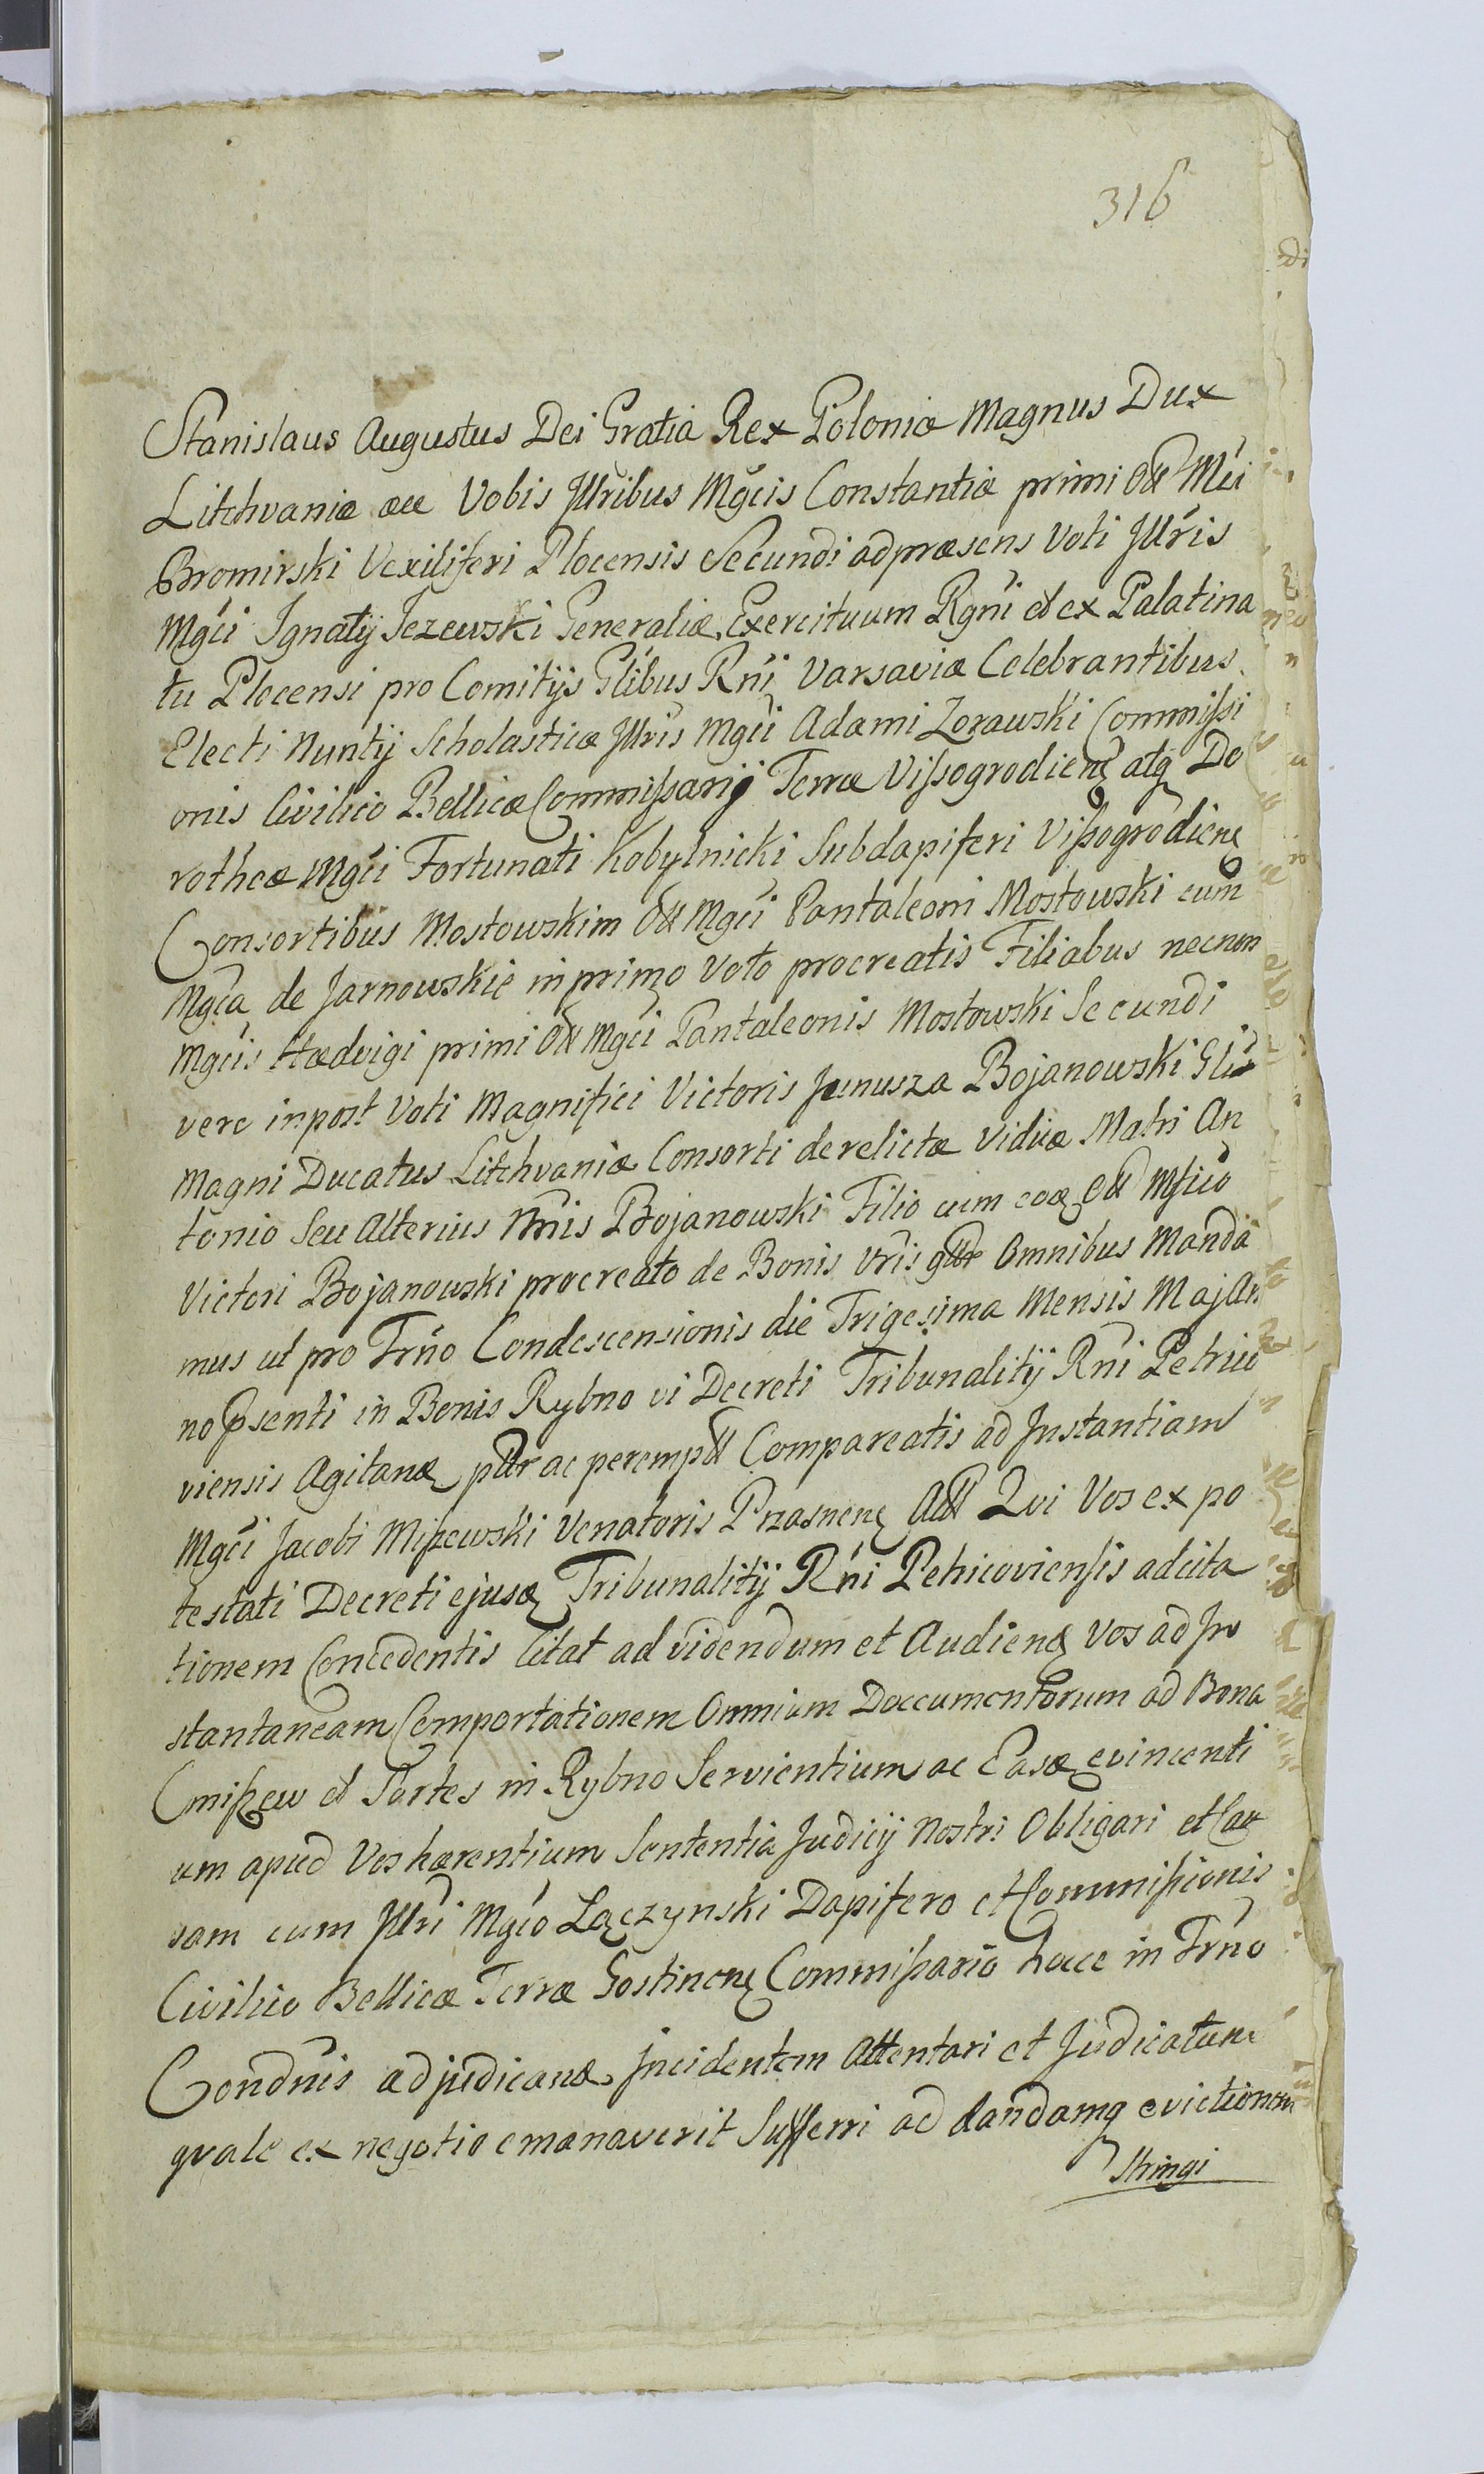 316
Stanislaus Augustus Dei Gratia Rex Poloniæ Magnus Dux
Litthvaniæ æcc Vobis Jllribus Mgcis Constantiæ primi Oll Mci
Bromirski Vexiliferi Plocensis Secundi ad præsens Voti Jllris
Mgci Jgnatij Jezewski Generaliæ Exercituum Rgni et ex Palatina
tu Plocensi pro Comitijs Glibus Rni Varsaviæ Celebrantibus
Electi Nuntij Scholasticæ Jllris Mgci Adami Zorawski Commissi
onis Civilico Bellicæ Commissarij Terræ Vissogrodienς atq Do
rotheæ Mgci Fortunati Kobylnicki Subdapiferi Vissogrodienς
Consortibus Mostowskim Oll Mgci Pantaleoni Mostowski cum
Mgca de Jarnowskie in primo Voto procreatis Filiabus necnon
Mgcis Hædvigi primi Oll Mgci Pantaleonis Mostowski Secundi
vero inpost Voti Magnifici Victoris Junusza Bojanowski
Magni Ducatus Litthvaniæ Consorti derelictæ Viduæ Matri An
tonio Seu Alterius Nnis Bojanowski Filio cum Oll
Victori Bojanowski procreato de Bonis Vris Omnibus Manda
mus ut pro Trno Condescensionis die Trigesima Mensis Maj An
no Psenti in Bonis Rybno vi Decreti Tribunalitij Rni Petrico
viensis Agitanæ ac peremp Compareatis ad Jnstantiam
Mgci Jacobi Missewski Venatoris Przasnenς All Qui Vos ex po
testati Decreti ejusæ Tribunalitij Rni Petricoviensis ad cita
tionem Concedentis Citat ad videndum et Audienς Vos ad Jn
stantaneam Comportationem Omnium Doccumentorum ad Bona
Cmissew et Sortes in Rybno Servientium ac Easæ evincenti
um apud Vos hærentium Sententia Judicij Nostri Obligari et Cau
sam cum Jllri Mgco Lączynski Dapifero et Commissionis
Civilico Bellicæ Terræ Gostinenς Commissario hocce in Trno
Condnis adjudicanæ Jncidentem Attentari et Judicatum
quale ex negotio emanaverit Sufferri ad dandamq evictionem
Stringi